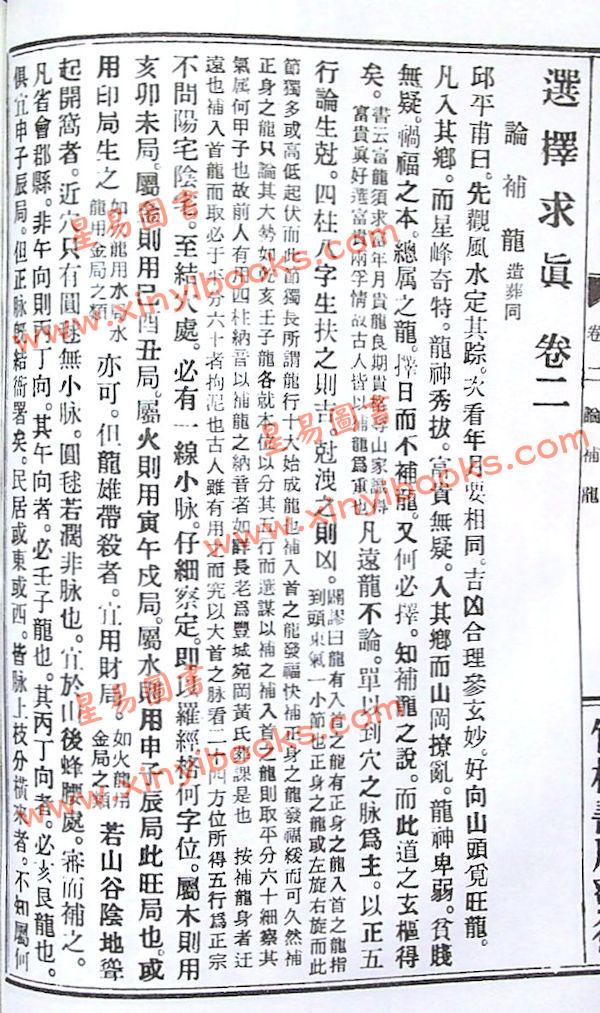 選擇求眞 卷二
論補龍 造葬同
邱平甫曰。先觀風水定其踪。次看年月要相同。吉凶合理參玄妙。好向山頭覓旺龍。
凡入其鄉。而星峰奇特。龍神秀拔。富貴無疑。入其鄉而山岡撩亂。龍神卑弱。貧賤
無疑。禍福之本。總属之龍。擇日而不補龍。又何必擇。知補龍之說。而此道之玄樞得
矣。書云富龍須求富年月貴龍良期貴格 山家 富貴眞好選富貴兩孚情故古人皆以補龍爲重也 凡遠龍不論。單以到穴之脉爲主。以正五
行論生尅。四柱八字生扶之則吉。尅洩之則凶。闢謬曰龍有入首之龍有正身之龍入首之龍指到頭束氣一小節也正身之龍或左旋右旋而此
節獨多或高低起伏而此節獨長所謂龍行十大始成龍也補入首之龍發福快補正身之龍發福緩而可久然補
正身之龍只論其大勢如乾亥壬子龍各就本位以分其五行而選謀以補之補入首之龍則取平分六十細察其
氣属何甲子也故前人有用四柱納音以補龍之納音者如 長老爲豐城宛岡黃氏葬課是也 按補龍身者迂
遠也補入首龍而取必于平分六十者拘泥也古人雖有用之而究以大首之脉看二十四方位所得五行爲正宗
不問陽宅陰宅。至結穴處。必有一線小脉。仔細察定。即以羅經格何字位。屬木則用
亥卯未局。屬金則用巳酉丑局。屬火則用寅午戌局。屬水則用申子辰局此旺局也。或
用印局生之 如木龍用水局水龍用金局之類 亦可。但龍雄帶殺者。宜用財局。如火龍用金局之類 若山谷陰地聳
起開窩者。近穴只有圓毬無小脉。圓毬若濶非脉也。宜於山後蜂腰處。審而補之。
凡省會郡縣。非午向則丙丁向。其午向者。必壬子龍也。其丙丁向者。必亥艮龍也。
俱宜申子辰局。但正脉既結衙署矣。民居或東或西。皆脉上枝分橫來者。不知屬何
卷二 論補龍
星易圖書
www.xinyibooks.com
星易圖書
www.xinyibooks.com
星易圖書
www.xinyibooks.com